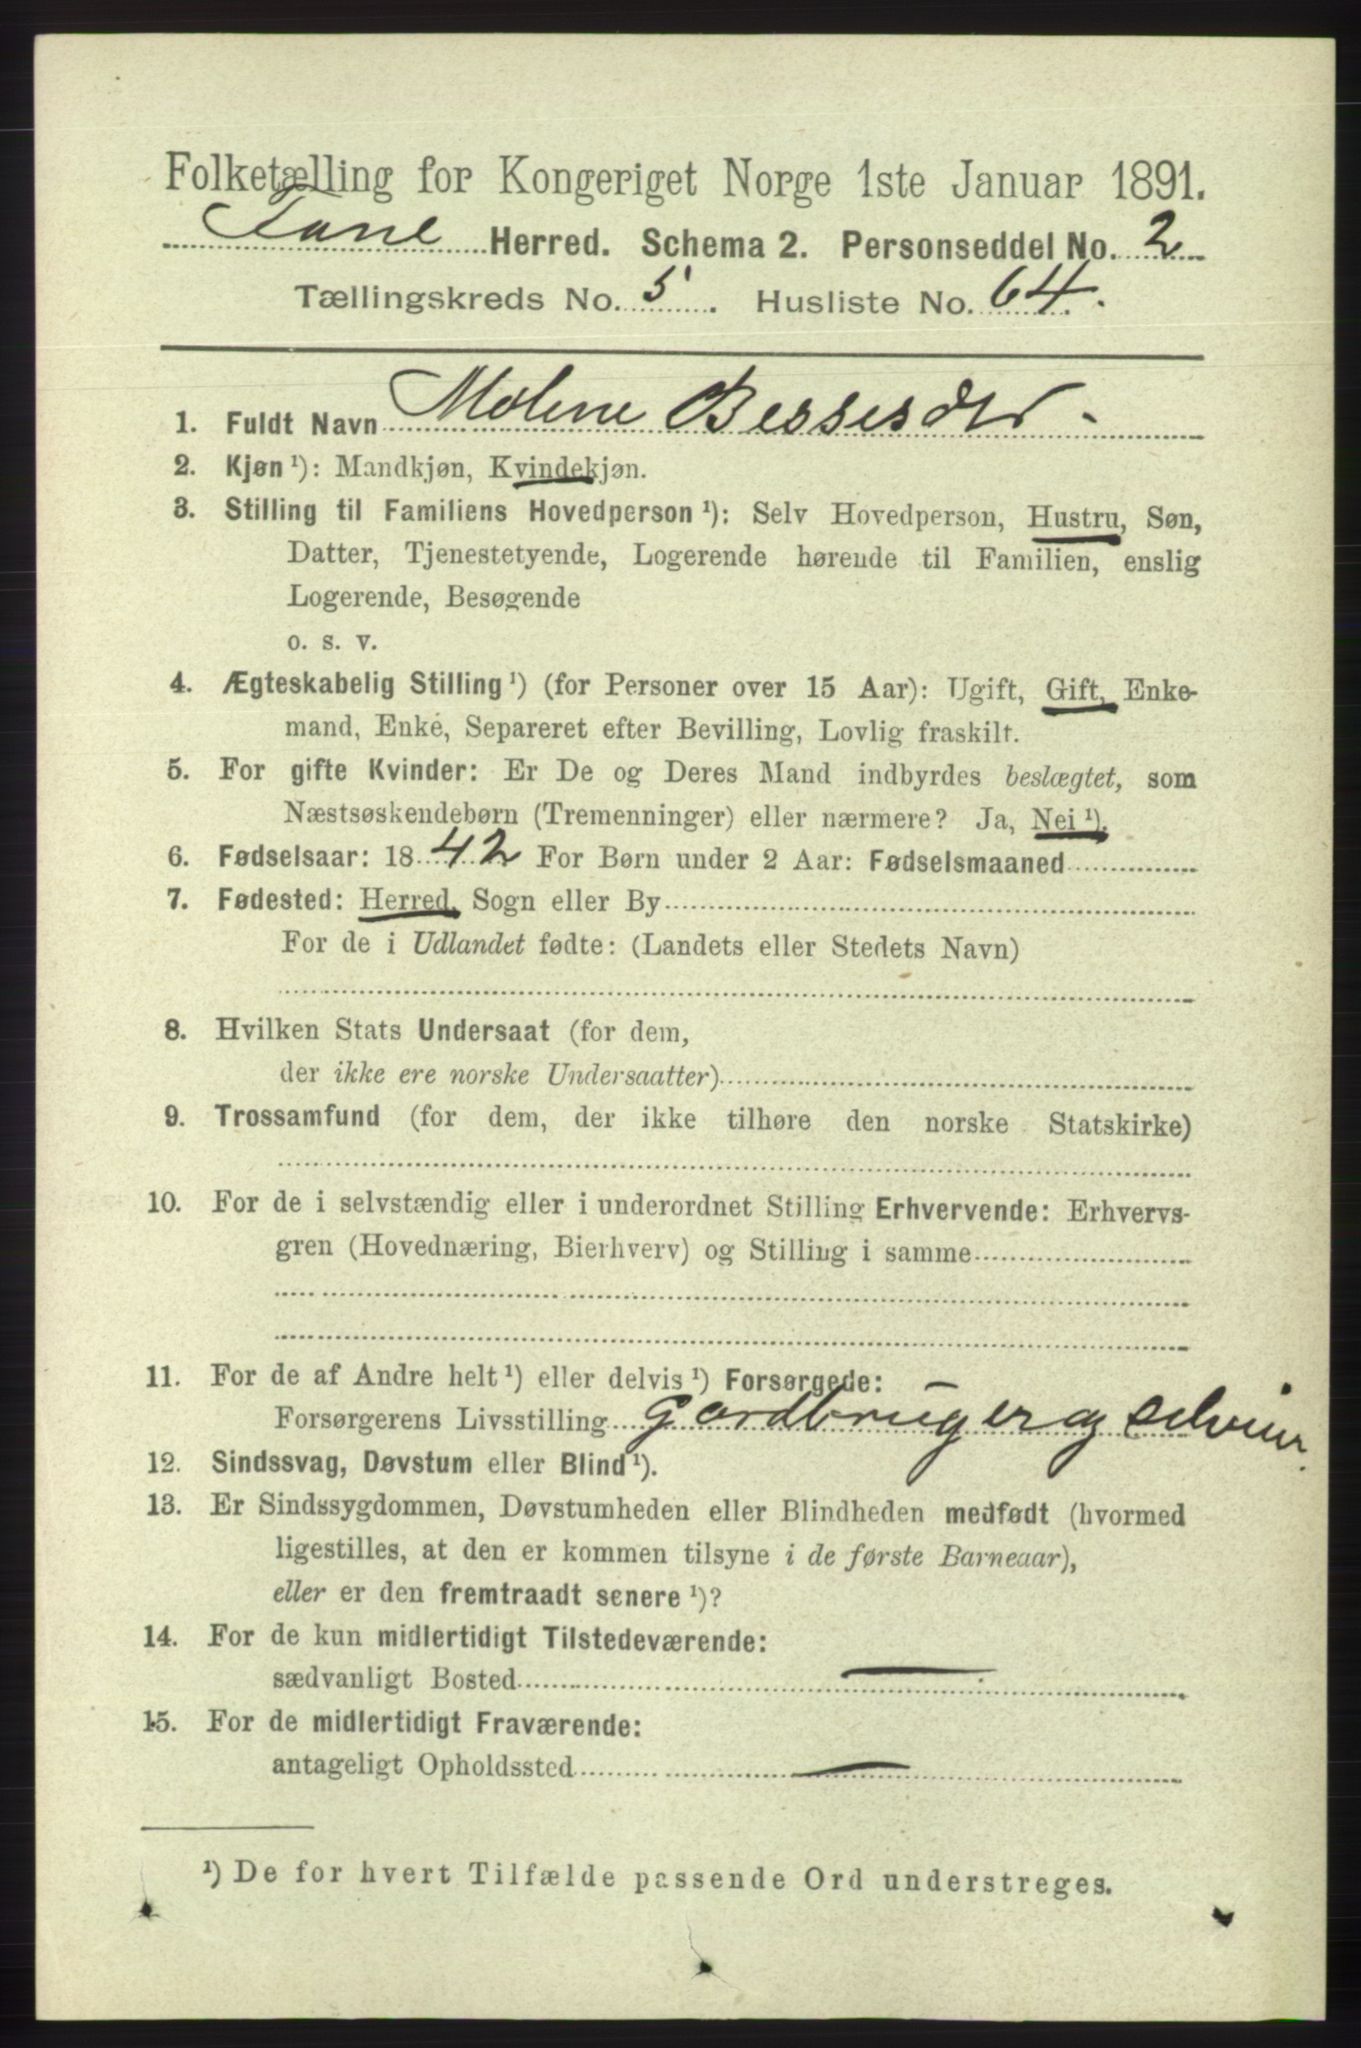 Folketælling for Kongeriget Norge 1ste Januar 1891.
Fane Herred. Schema 2. Personseddel No. 2
Tællingskreds No. 5. Husliste No. 64.
1. Fuldt Navn Malene Bessesdtr
2. Kjøn ¹): Mandkjøn, Kvindekjøn.
3. Stilling til Familiens Hovedperson ¹): Selv Hovedperson, Hustru, Søn,
Datter, Tjenestetyende, Logerende hørende til Familien, enslig
Logerende, Besøgende
o. s. v.
4. Ægteskabelig Stilling ¹) (for Personer over 15 Aar): Ugift, Gift, Enke-
mand, Enke, Separeret efter Bevilling, Lovlig fraskilt.
5. For gifte Kvinder: Er De og Deres Mand indbyrdes beslægtet, som
Næstsøskendebørn (Tremenninger) eller nærmere? Ja, Nei ¹).
6. Fødselsaar: 1842 For Børn under 2 Aar: Fødselsmaaned
7. Fødested: Herred, Sogn eller By
For de i Udlandet fødte: (Landets eller Stedets Navn)
8. Hvilken Stats Undersaat (for dem,
der ikke ere norske Undersaatter)
9. Trossamfund (for dem, der ikke tilhøre den norske Statskirke)
10. For de i selvstændig eller i underordnet Stilling Erhvervende: Erhvervs-
gren (Hovednæring, Bierhverv) og Stilling i samme
11. For de af Andre helt ¹) eller delvis ¹) Forsørgede:
Forsørgerens Livsstilling Gardbruger og selveier.
12. Sindssvag, Døvstum eller Blind ¹).
13. Er Sindssygdommen, Døvstumheden eller Blindheden medfødt (hvormed
ligestilles, at den er kommen tilsyne i de første Barneaar),
eller er den fremtraadt senere ¹)?
14. For de kun midlertidigt Tilstedeværende:
sædvanligt Bosted —
15. For de midlertidigt Fraværende:
antageligt Opholdssted —
¹) De for hvert Tilfælde passende Ord understreges.